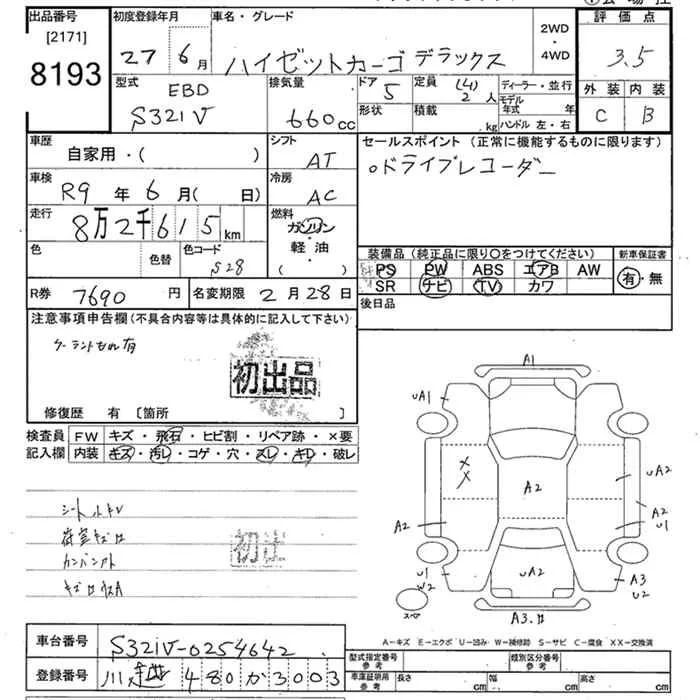 出品番号
[2171]
8193
初度登録年月
27 6月
車名・グレード
ハイゼットカーゴ デラックス
2WD
・
4WD
評価点
3.5
外装 内装
C B
型式
EBD
S321V
排気量
660cc
ドア
5
形状
定員
(4)
2人
積載
kg
ディーラー・並行
モデル年式 年
ハンドル 左・右
車歴
自家用・( )
シフト
AT
車検
R9年6月( 日)
冷房
AC
走行
8万2千615km
燃料
ガソリン
・
軽・油
( )
色
色替
色コード
S28
セールスポイント(正常に機能するものに限ります)
○ドライブレコーダー
装備品(純正品に限り○をつけてください)
PS PW ABS エアB AW
SR ナビ TV カワ
新車保証書
有・無
後日品
R券 7690円
名変期限 2月28日
注意事項申告欄(不具合内容等は具体的に記入して下さい)
クーラントもれ有
初出品
修復歴 有 [箇所 ]
検査員
記入欄
FW キズ・飛石・ヒビ割・リペア跡・×要
内装 キズ・汚レ・コゲ・穴・スレ・キレ・破レ
初出
A1
uA1
A2
uA2
A2
A2
u1
u1
w2
uA2
A3
u2
スペア
A3.
A-キズ E-エクボ U-凹み W-補修跡 S-サビ C-腐食 XX-交換済
車台番号 S321V-0254642
登録番号 川越 480か3003
型式指定番号
参考
類別区分番号
参考
車庫証明用
参考
長さ cm
幅 cm
高さ cm